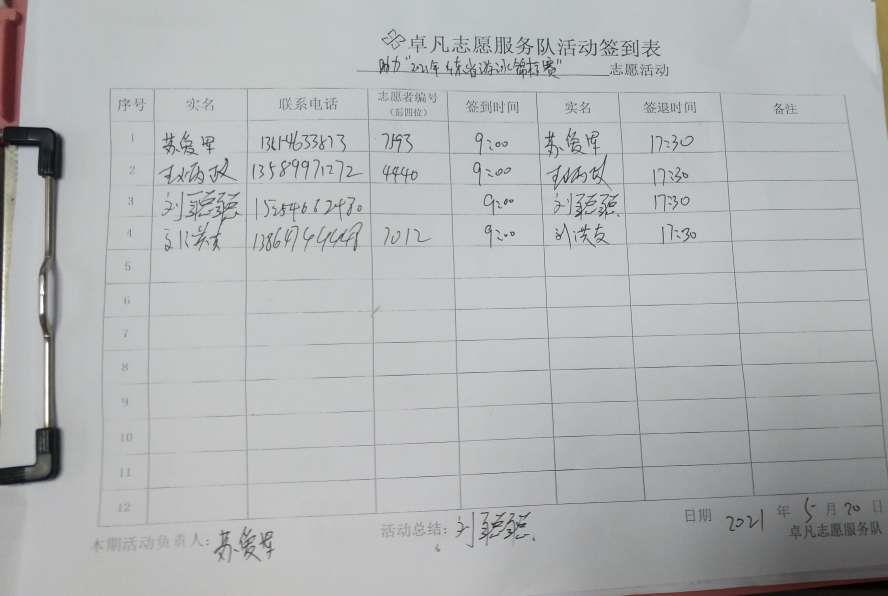 卓凡志愿服务队活动签到表
助力"2021年山东省游泳锦标赛" 志愿活动
序号 实名 联系电话 志愿者编号 签到时间 实名 签退时间 备注
(后四位)
1 苏爱军 13614633873 7193 9:00 苏爱军 17:30
2 4440 9:00 17:30
3 刘聪聪 15254662480 9:00 刘聪聪 17:30
4 13864744448 7012 9:00 刘洪友 17:30
5
6
7
8
9
10
11
12
本期活动负责人: 苏爱军 活动总结: 刘聪聪 日期 2021 年 5 月 20 日
卓凡志愿服务队